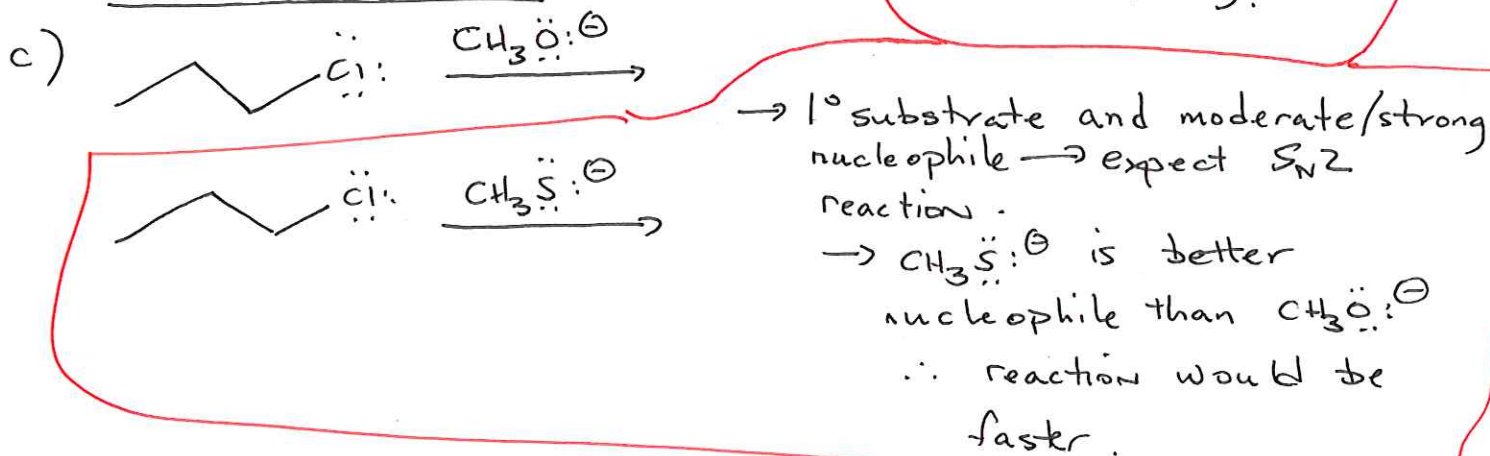 c)
Cl: CH₃O:⊖
→ 1° substrate and moderate/strong
nucleophile → expect SN2
reaction.
Cl: CH₃S:⊖
→ CH₃S:⊖ is better
nucleophile than CH₃O:⊖
∴ reaction would be
faster.